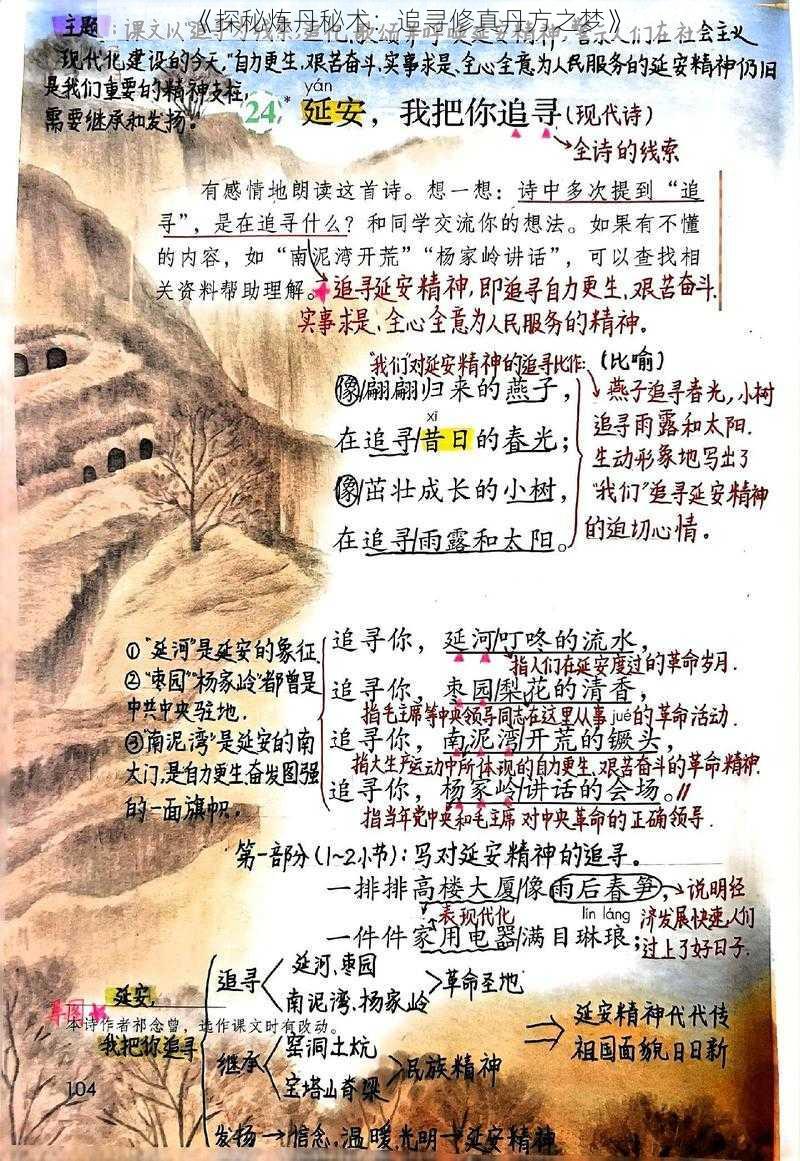 《探秘炼丹秘术：追寻修真丹方之梦》
主题：课文以"追寻"为线索,
延安精神,警示人们在社会主义
现代化建设的今天,"自力更生、艰苦奋斗、实事求是、全心全意为人民服务的延安精神仍旧
是我们重要的精神支柱,
需要继承和发扬。
yán
24* 延安，我把你追寻(现代诗)
→全诗的线索
有感情地朗读这首诗。想一想：诗中多次提到“追
寻”，是在追寻什么？和同学交流你的想法。如果有不懂
的内容，如“南泥湾开荒”“杨家岭讲话”，可以查找相
关资料帮助理解。
追寻延安精神,即追寻自力更生、艰苦奋斗、
实事求是、全心全意为人民服务的精神。
"我们"对延安精神的追寻比作:(比喻)
像/翩翩归来的燕子，
xī
在追寻/昔日的春光；
像/茁壮成长的小树，
在追寻/雨露和太阳。
燕子追寻春光,小树
追寻雨露和太阳.
生动形象地写出了
"我们"追寻延安精神
的迫切心情。
①"延河"是延安的象征.
②"枣园""杨家岭"都曾是
中共中央驻地.
③"南泥湾"是延安的南
大门,是自力更生、奋发图强
的一面旗帜.
追寻你，延河/叮咚的流水，
指人们在延安度过的革命岁月.
追寻你，枣园/梨花的清香，
指毛主席等中央领导同志在这里从事的革命活动.
jué
追寻你，南泥湾/开荒的镢头，
指大生产运动中所体现的自力更生、艰苦奋斗的革命精神.
追寻你，杨家岭/讲话的会场。//
指当年党中央和毛主席对中央革命的正确领导.
第一部分(1~2小节):写对延安精神的追寻。
一排排高楼大厦/像雨后春笋，
→说明经
济发展快速,人们
过上了好日子.
表现代化
lín láng
一件件家用电器/满目琳琅；
导图
延安,
我把你追寻
追寻
延河、枣园
南泥湾、杨家岭
>革命圣地
继承
窑洞土炕
宝塔山脊梁
>民族精神
发扬→信念,温暖,光明→延安精神
⇒
延安精神代代传
祖国面貌日日新
本诗作者祁念曾，选作课文时有改动。
104